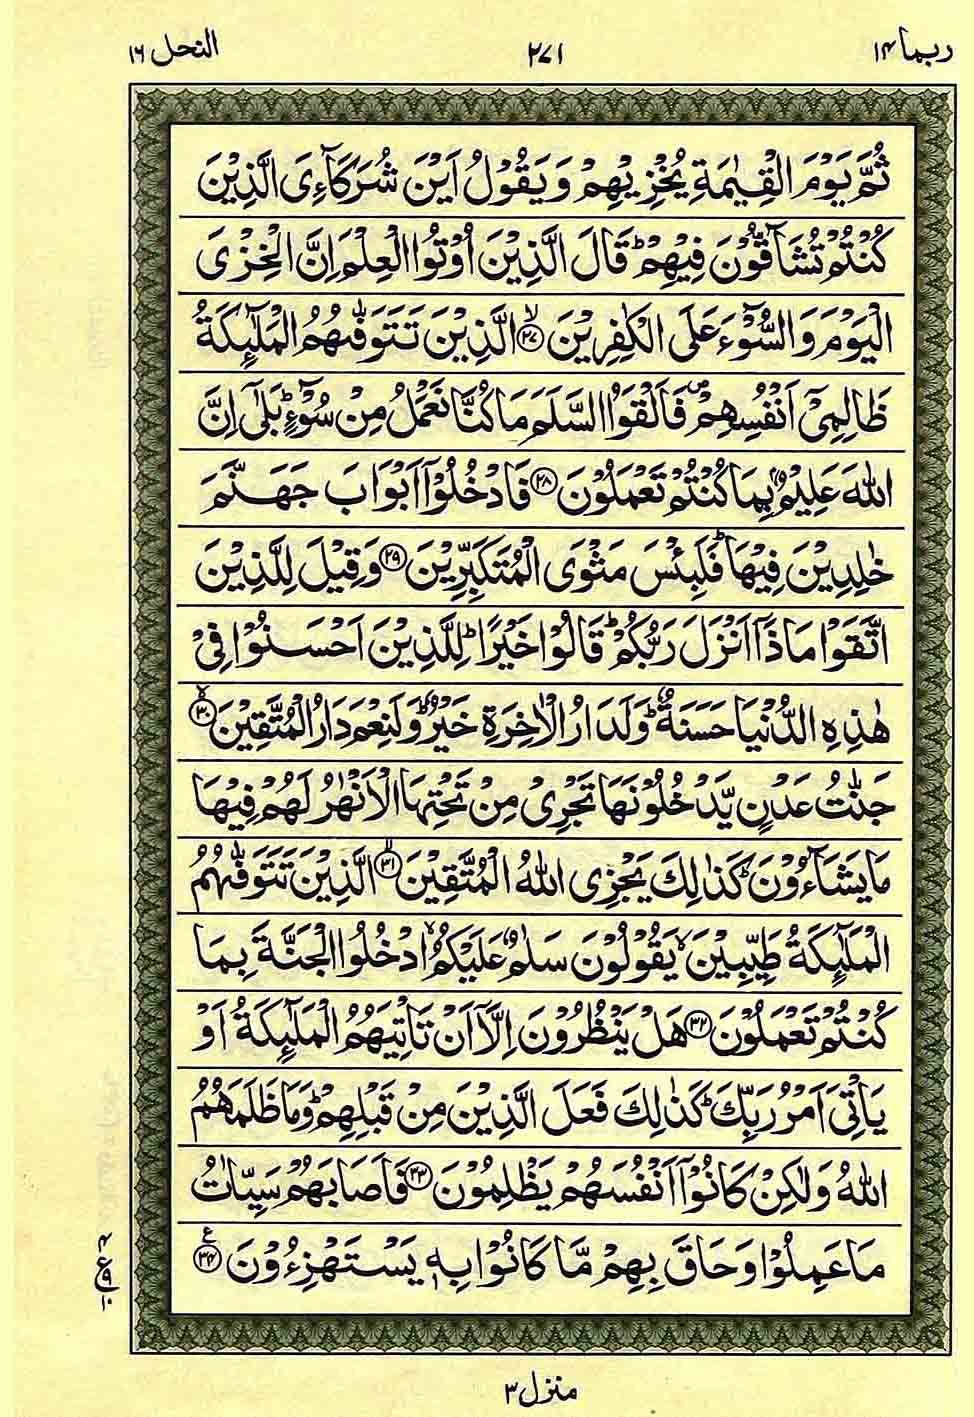 ربما ١٤
٢٧١
النحل ١٦
ثُمَّ يَوْمَ الْقِيٰمَةِ يُخْزِيْهِمْ وَيَقُوْلُ اَيْنَ شُرَكَآءِيَ الَّذِيْنَ
كُنْتُمْ تُشَآقُّوْنَ فِيْهِمْ ؕ قَالَ الَّذِيْنَ اُوْتُوا الْعِلْمَ اِنَّ الْخِزْيَ
الْيَوْمَ وَالسُّوْٓءَ عَلَى الْكٰفِرِيْنَ ۙ﴿٢٧﴾ الَّذِيْنَ تَتَوَفّٰىهُمُ الْمَلٰٓئِكَةُ
ظَالِمِيْٓ اَنْفُسِهِمْ ۪ فَاَلْقَوُا السَّلَمَ مَا كُنَّا نَعْمَلُ مِنْ سُوْٓءٍ ؕ بَلٰٓى اِنَّ
اللّٰهَ عَلِيْمٌۢ بِمَا كُنْتُمْ تَعْمَلُوْنَ ﴿٢٨﴾ فَادْخُلُوْٓا اَبْوَابَ جَهَنَّمَ
خٰلِدِيْنَ فِيْهَا ؕ فَلَبِئْسَ مَثْوَى الْمُتَكَبِّرِيْنَ ﴿٢٩﴾ وَقِيْلَ لِلَّذِيْنَ
اتَّقَوْا مَاذَآ اَنْزَلَ رَبُّكُمْ ؕ قَالُوْا خَيْرًا ؕ لِلَّذِيْنَ اَحْسَنُوْا فِيْ
هٰذِهِ الدُّنْيَا حَسَنَةٌ ؕ وَلَدَارُ الْاٰخِرَةِ خَيْرٌ ؕ وَلَنِعْمَ دَارُ الْمُتَّقِيْنَ ۙ﴿٣٠﴾
جَنّٰتُ عَدْنٍ يَّدْخُلُوْنَهَا تَجْرِيْ مِنْ تَحْتِهَا الْاَنْهٰرُ لَهُمْ فِيْهَا
مَا يَشَآءُوْنَ ؕ كَذٰلِكَ يَجْزِي اللّٰهُ الْمُتَّقِيْنَ ۙ﴿٣١﴾ الَّذِيْنَ تَتَوَفّٰىهُمُ
الْمَلٰٓئِكَةُ طَيِّبِيْنَ ۙ يَقُوْلُوْنَ سَلٰمٌ عَلَيْكُمُ ۙ ادْخُلُوا الْجَنَّةَ بِمَا
كُنْتُمْ تَعْمَلُوْنَ ﴿٣٢﴾ هَلْ يَنْظُرُوْنَ اِلَّآ اَنْ تَاْتِيَهُمُ الْمَلٰٓئِكَةُ اَوْ
يَاْتِيَ اَمْرُ رَبِّكَ ؕ كَذٰلِكَ فَعَلَ الَّذِيْنَ مِنْ قَبْلِهِمْ ؕ وَمَا ظَلَمَهُمُ
اللّٰهُ وَلٰكِنْ كَانُوْٓا اَنْفُسَهُمْ يَظْلِمُوْنَ ﴿٣٣﴾ فَاَصَابَهُمْ سَيِّاٰتُ
مَا عَمِلُوْا وَحَاقَ بِهِمْ مَّا كَانُوْا بِهٖ يَسْتَهْزِءُوْنَ ﴿٣٤﴾ ع
٤
ع ٩
١٠
منزل ٣